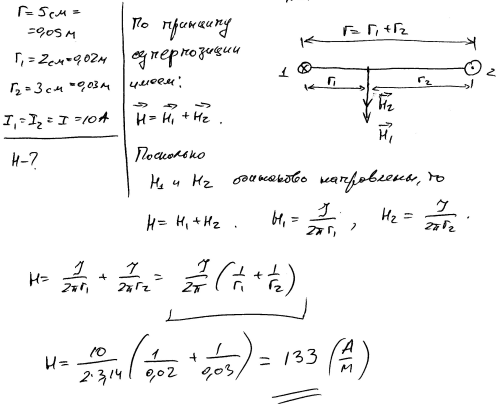 r = 5 см =
= 0,05 м
r₁ = 2 см = 0,02 м
r₂ = 3 см = 0,03 м
I₁ = I₂ = I = 10 А
H - ?
По принципу
суперпозиции
имеем:
H⃗ = H⃗₁ + H⃗₂.
r = r₁ + r₂
1
2
r₁
r₂
H⃗₂
H⃗₁
Поскольку
H₁ и H₂ одинаково направлены, то
H = H₁ + H₂. H₁ = J/2πr₁, H₂ = J/2πr₂.
H = J/2πr₁ + J/2πr₂ = J/2π (1/r₁ + 1/r₂)
H = 10/2·3,14 (1/0,02 + 1/0,03) = 133 (А/м)